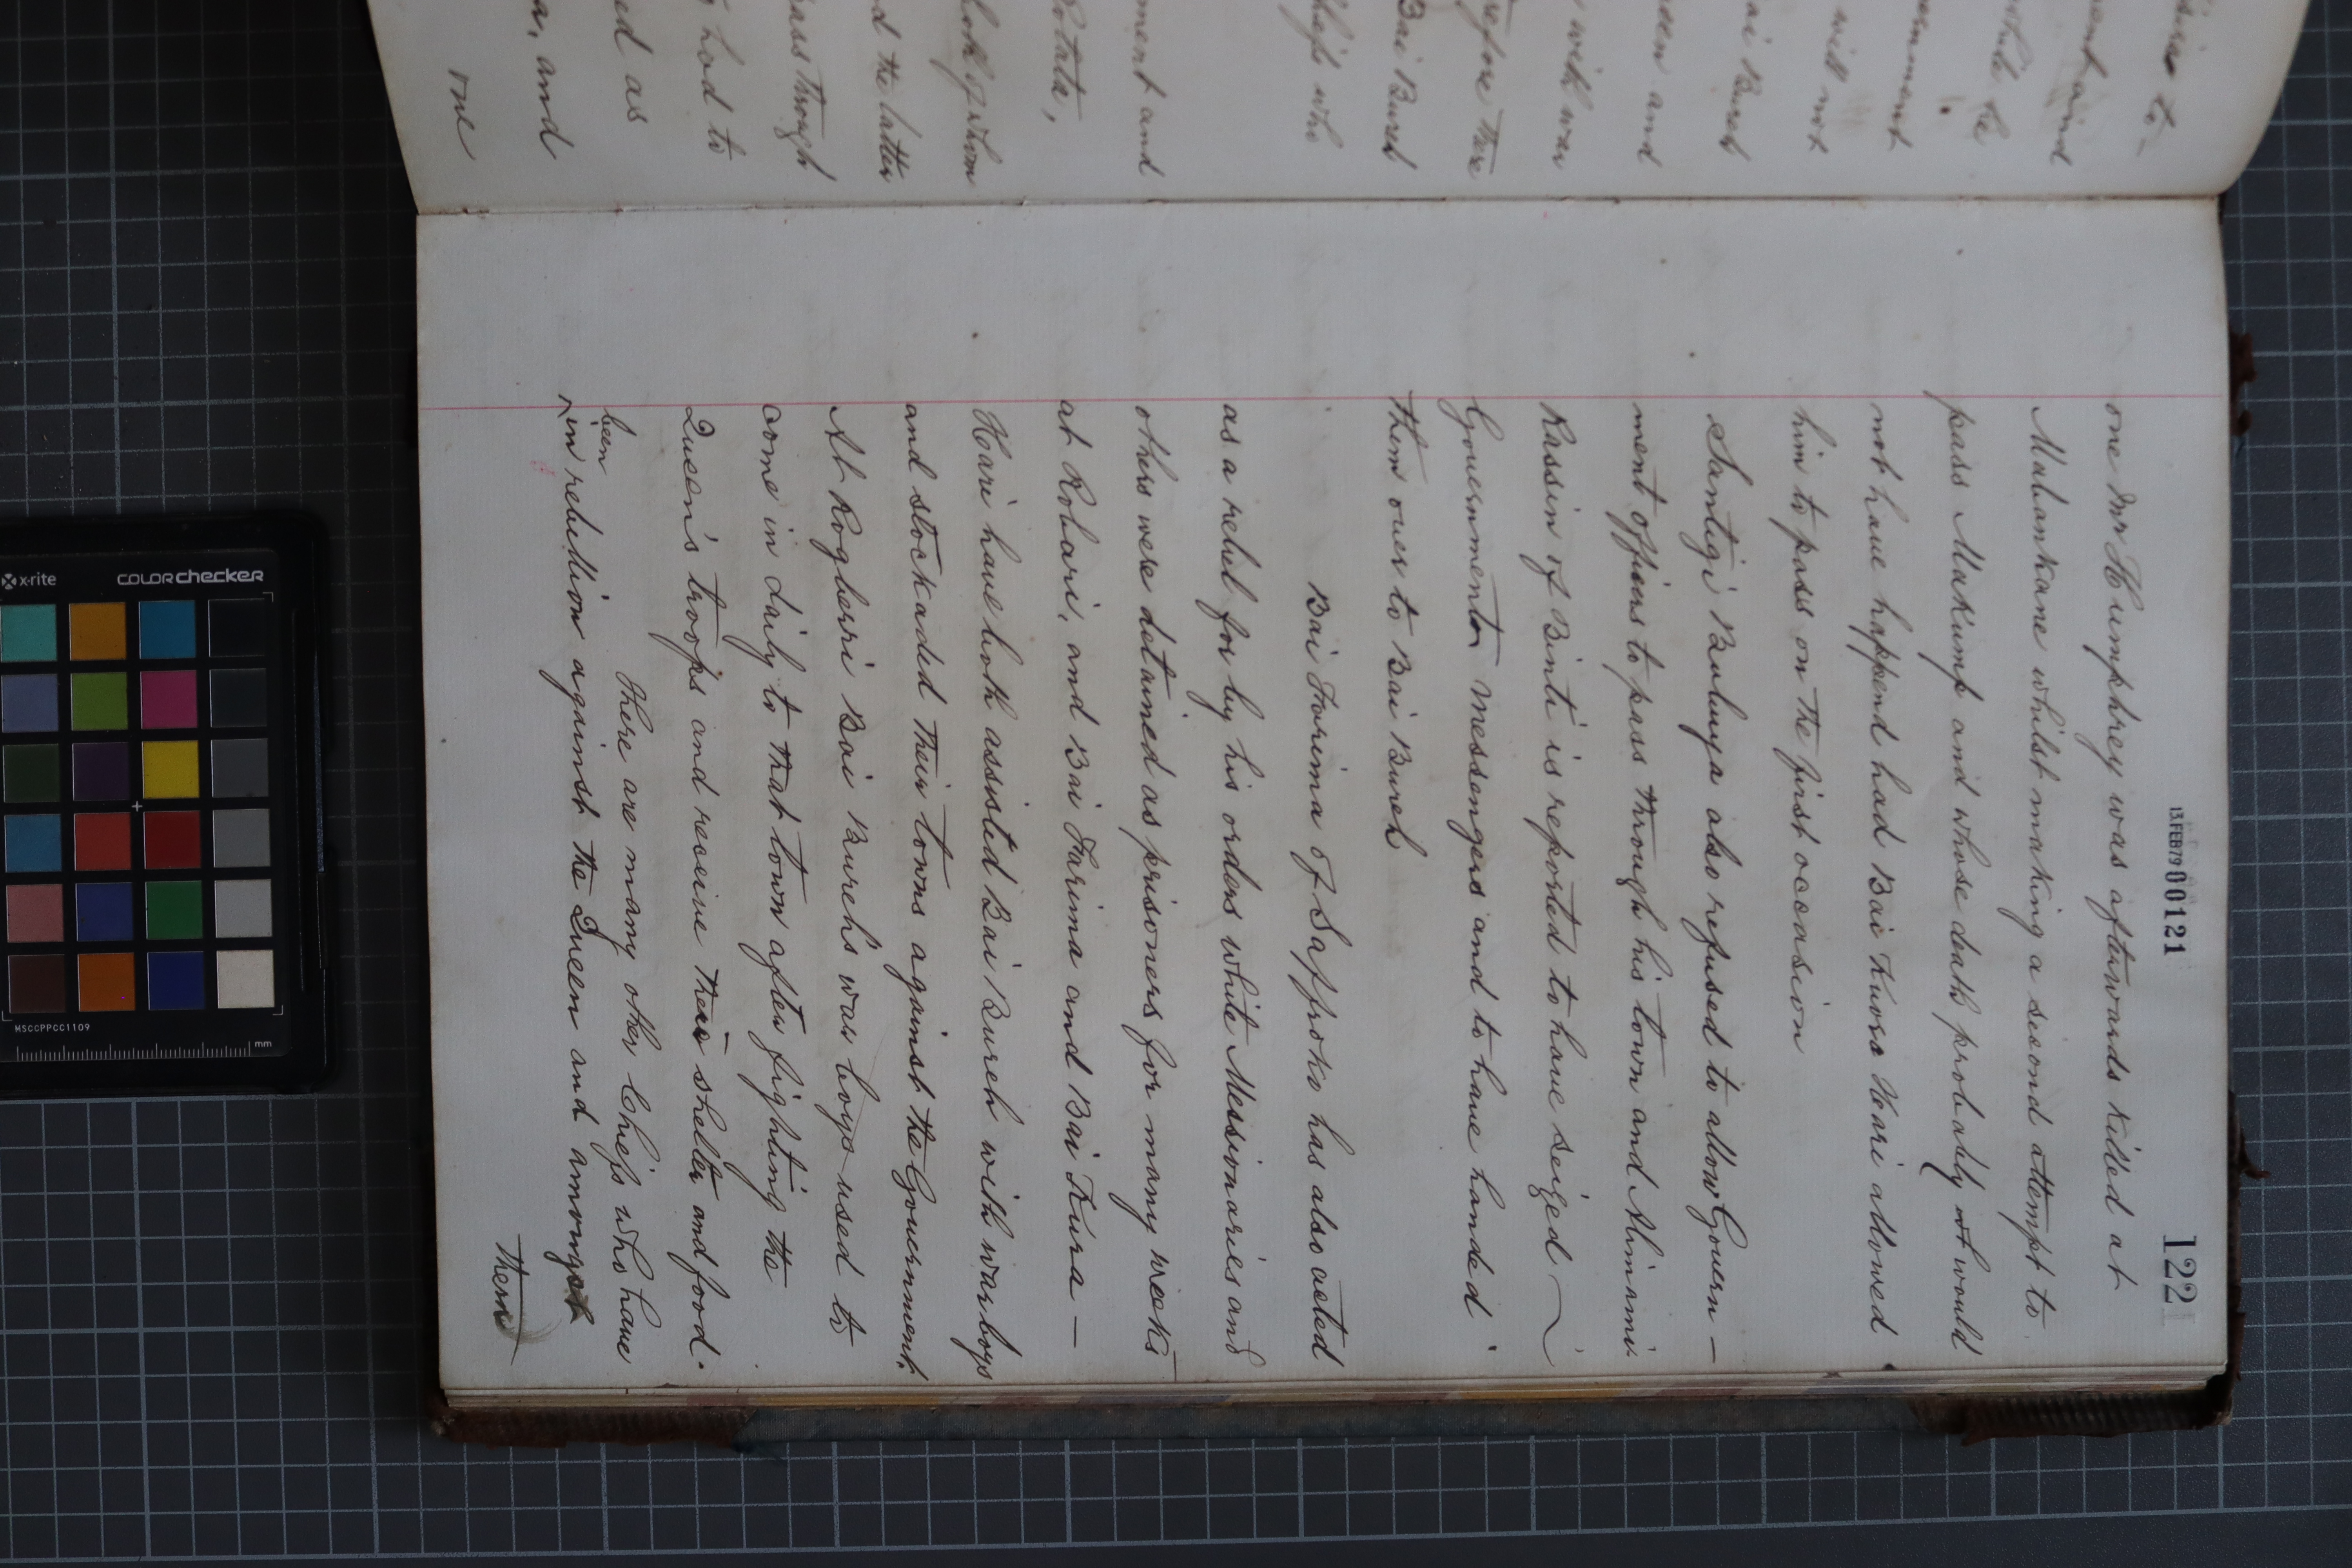 13.FEB79 00121
122
one Mr Humphrey was afterwards killed at
Mabankane whilst making a second attempt to
pass Makump and whose death probably not would
not have happend had Bai Kuoro Hari allowed
him to pass on the first occasion
Santigi Bubuya also refused to allow Govern-
ment officers to pass through his town and Alimami
Kassin of Binti is reported to have seized
Government messengers and to have handed
them over to Bai Bureh
Bai Forima of Saffroko has also acted
as a rebel for by his orders white Missionaries and
others were detained as prisoners for many weeks
at Robari, and Bai Farima and Bai Kura -
Hari have both assisted Bai Bureh with warboys
and stockaded their towns against the Government.
At Rogberri Bai Bureh's war boys used to
come in daily to that town after fighting the
Queen's troops and receive their shelter and food.
There are many other Chiefs who have
been
^ in rebellion against the Queen and amongst
them
sire to-
ment aind
while he
ernment
will not
ai Bureh
een and
with war
refore there
Bai Bureh
Chiefs who
ment and
Rotata,
look of whom
d the latter
pass through
had to
ed as
a, and
one
x-rite
colorchecker
MSCCPPCC1109
mm